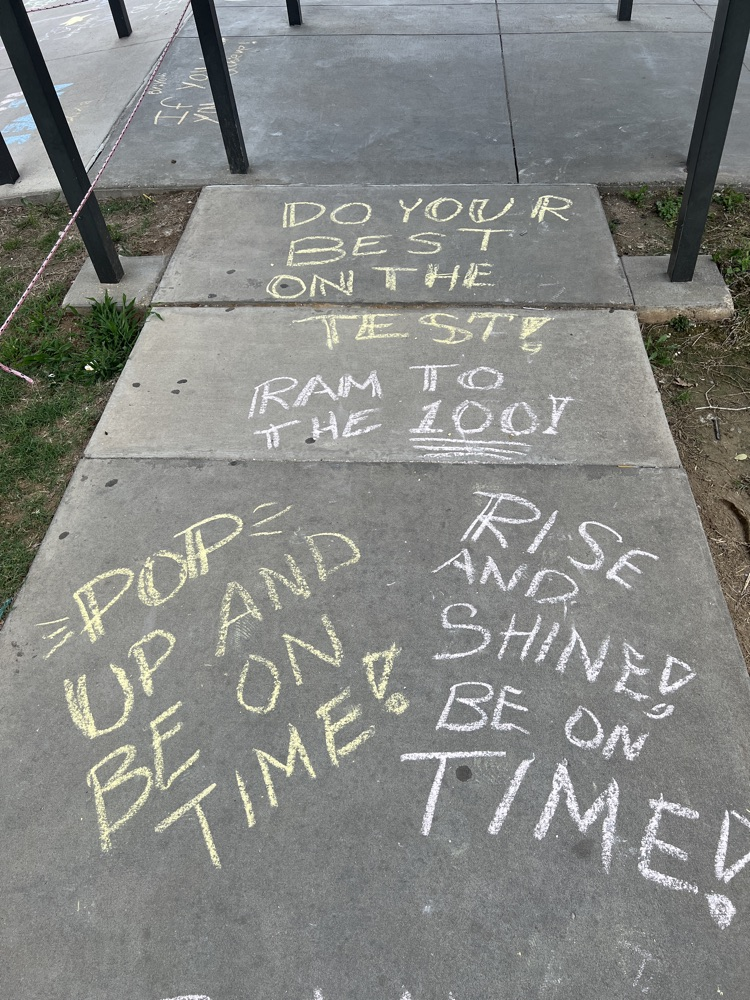 IF YOU
DO YOUR
BEST
ON THE
TEST!
RAM TO
THE 100!
POP
UP AND
BE ON
TIME!
RISE
AND
SHINE!
BE ON
TIME!